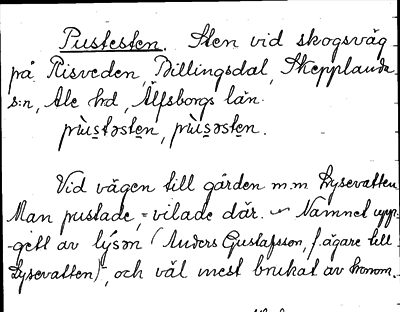 Pustesten. Sten vid skogsväg
på Risveden, Billingsdal, Skepplanda
s:n, Ale hd, Älfsborgs län.
pùstəsten, pùsəsten.
Vid vägen till gården m.m Lysevatten
Man pustade, = vilade där. — Namnet upp-
-gett av lýsən (Anders Gustafsson, f. ägare till
Lysevatten), och väl mest brukat av honom.